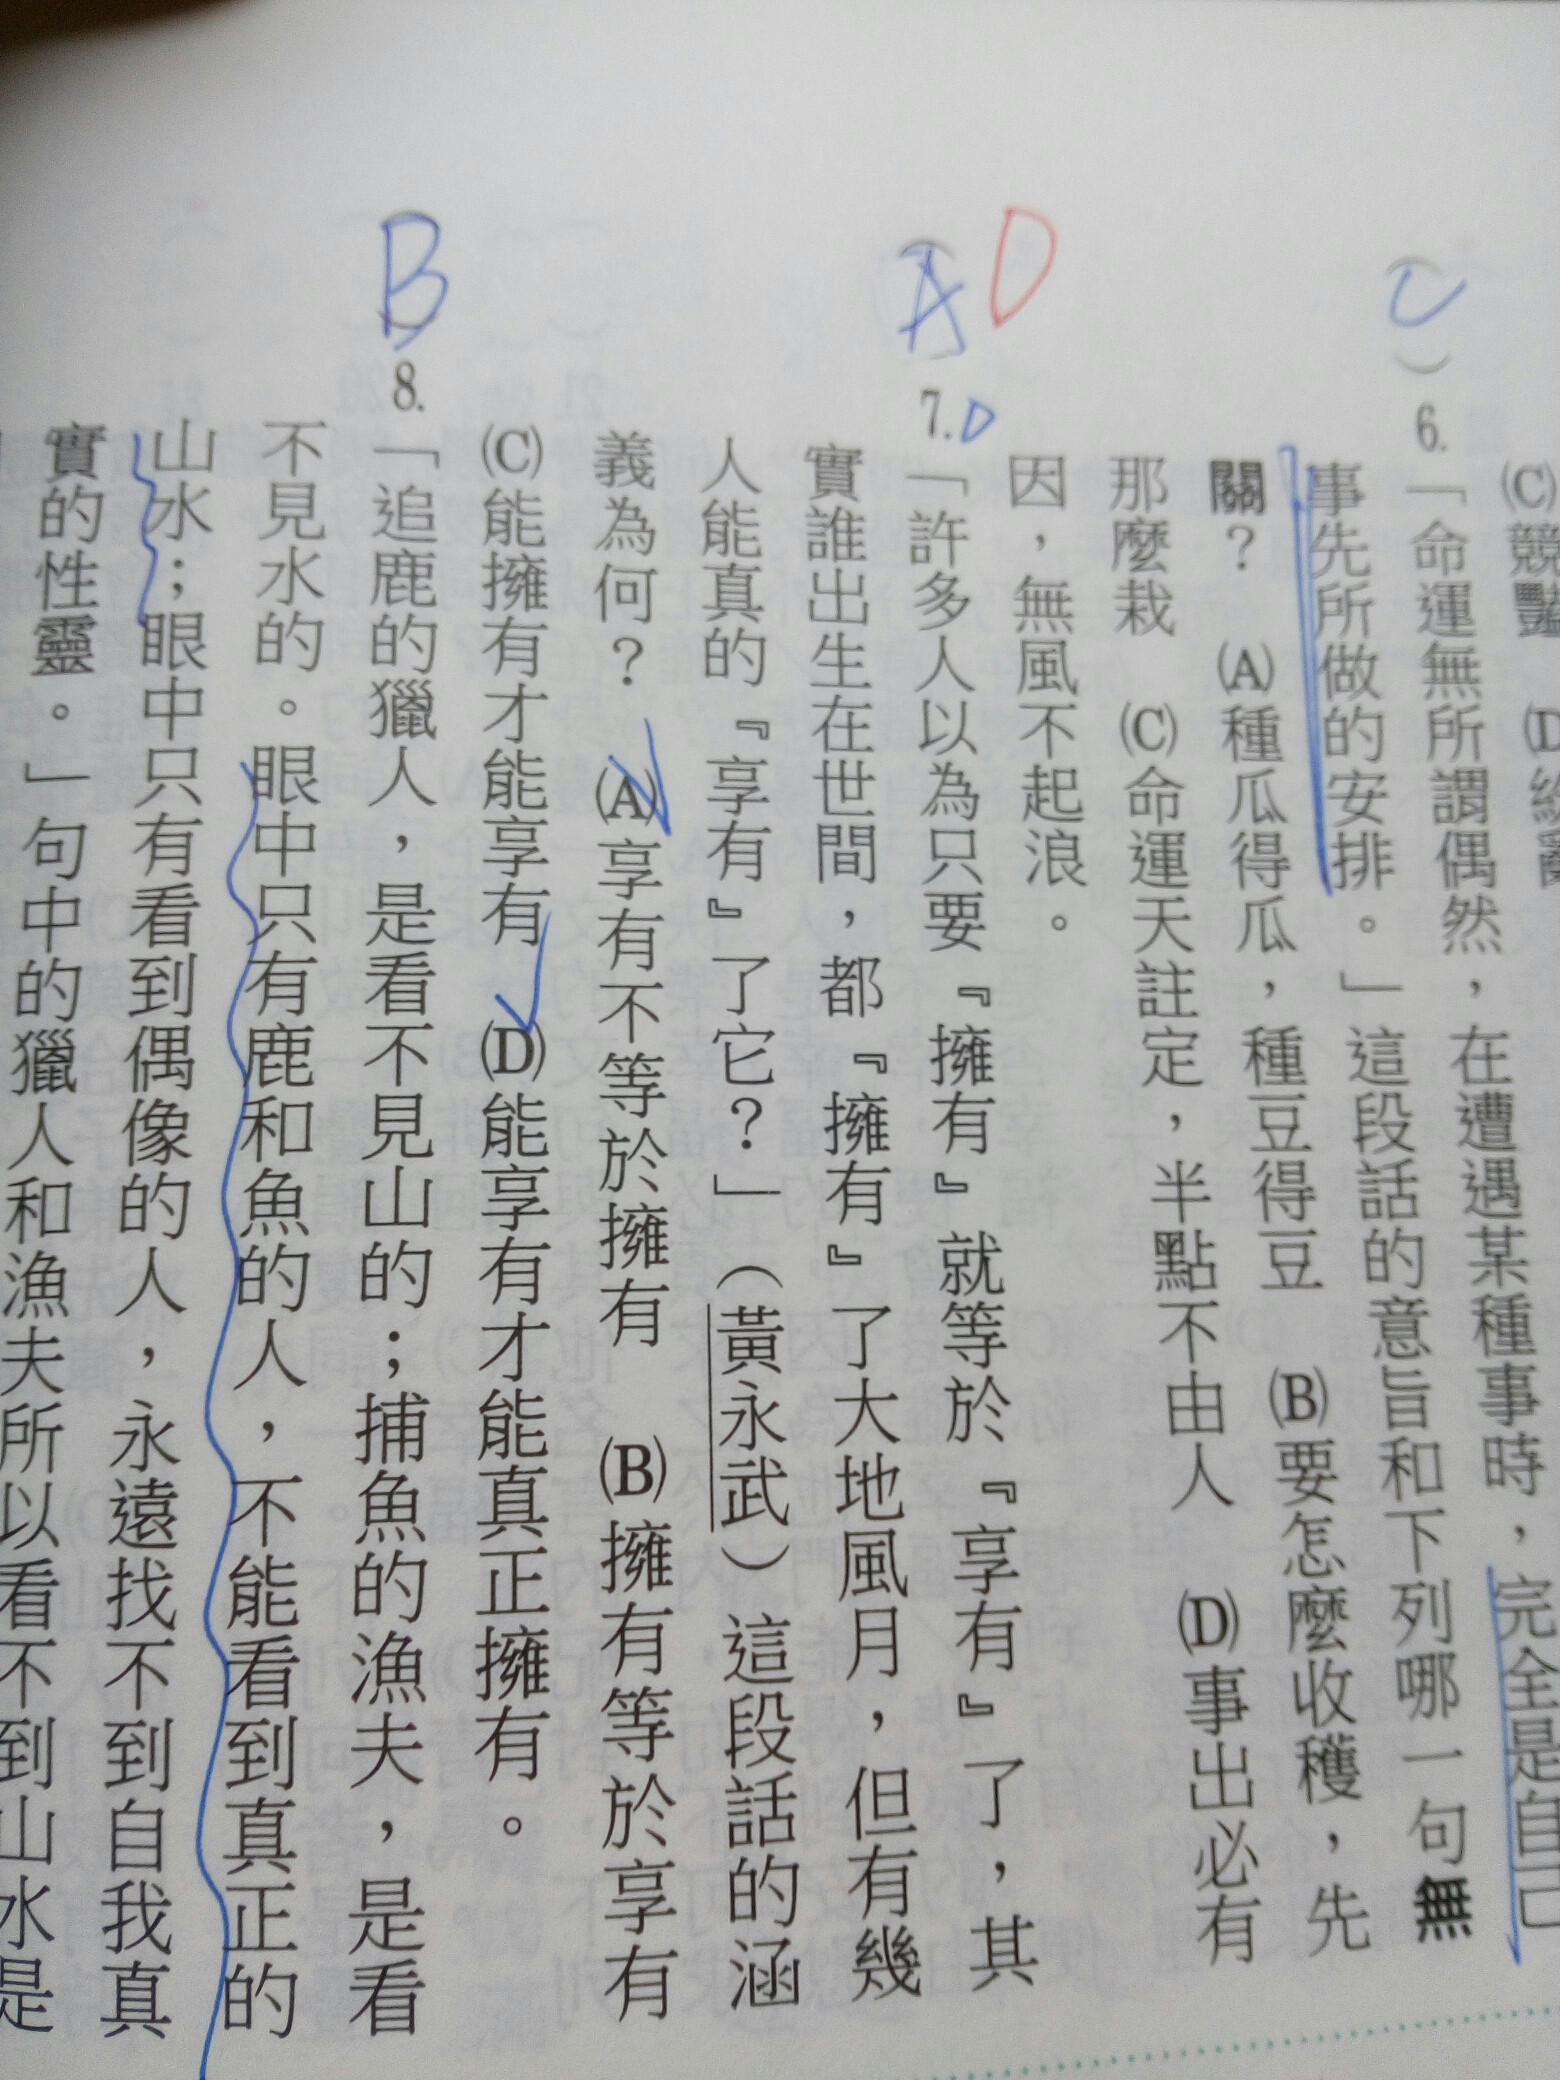 (C)競豔 (D)
C
6.「命運無所謂偶然，在遭遇某種事時，完全是自己
事先所做的安排。」這段話的意旨和下列哪一句無
關？ (A)種瓜得瓜，種豆得豆 (B)要怎麼收穫，先
那麼栽 (C)命運天註定，半點不由人 (D)事出必有
因，無風不起浪。
A D
7. D
「許多人以為只要『擁有』就等於『享有』了，其
實誰出生在世間，都『擁有』了大地風月，但有幾
人能真的『享有』了它？」（黃永武）這段話的涵
義為何？ (A)享有不等於擁有 (B)擁有等於享有
(C)能擁有才能享有 (D)能享有才能真正擁有。
B
8.「追鹿的獵人，是看不見山的；捕魚的漁夫，是看
不見水的。眼中只有鹿和魚的人，不能看到真正的
山水；眼中只有看到偶像的人，永遠找不到自我真
實的性靈。」句中的獵人和漁夫所以看不到山水是